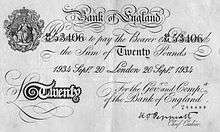 Bank of England
53406 to pay the Bearer on 53406
the Sum of Twenty Pounds
1934 Sept. 20 London 20 Sept. 1934
For the Gov.r and Comp.a
of the Bank of England
Twenty
Chief Cashier